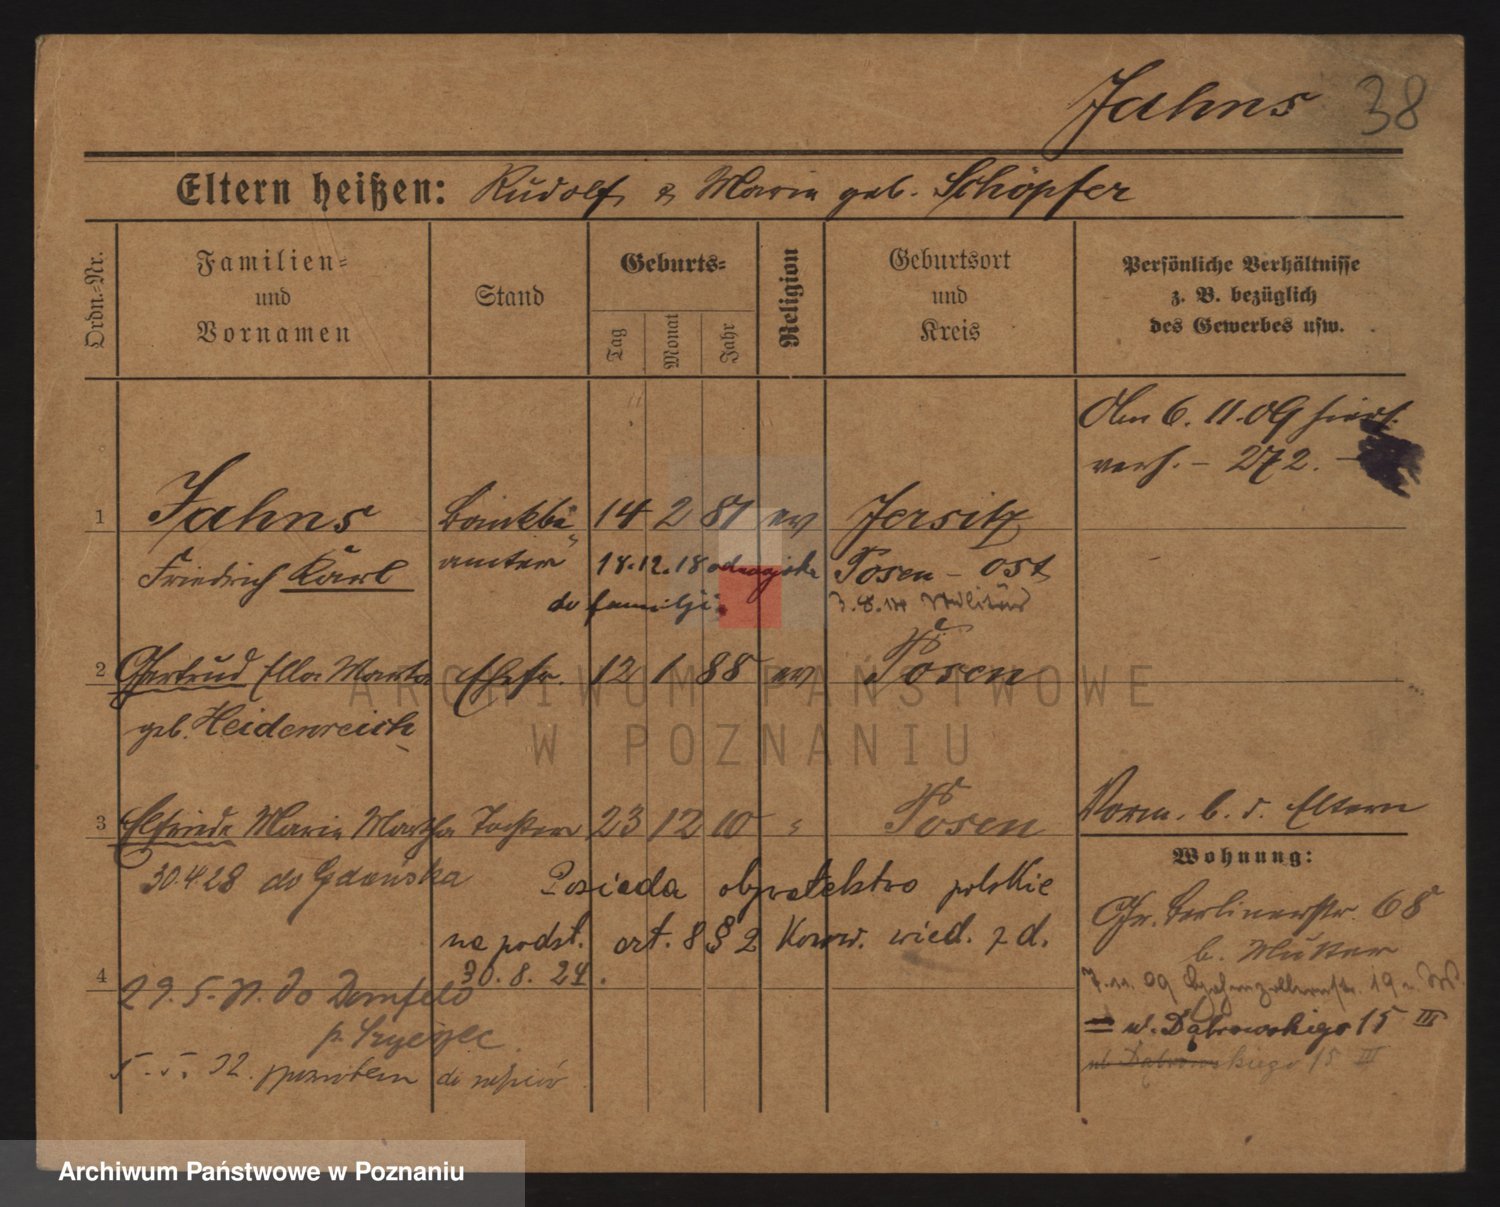 Jahns 38
Eltern heißen: Rudolf & Marie geb. Schöpfer
Ordn.-Nr.
Familien- und Vornamen
Stand
Geburts-
Tag
Monat
Jahr
Religion
Geburtsort und Kreis
Persönliche Verhältnisse
z. B. bezüglich
des Gewerbes usw.
Am 6. 11. 09 hiers.
verh. - 272. -
1 Jahns Bankbe- 14 2 87 ev Jersitz
Friedrich Karl amter 18.12.18 Posen - Ost
do familji 3.8.14 Militär
2 Gertrud Ella Marta Ehefr. 12 1 88 ev Posen
geb. Heidenreich
ARCHIWUM PAŃSTWOWE
W POZNANIU
3 Elfriede Marie Martha Tochter 23 12 10 " Posen
Vorm. b. d. Eltern
Wohnung:
30.4.28 do Gdańska
Posiada obywatelstwo polskie
na podst. art. 8 § 2 Konw. wied. z d.
30.8.24.
Gr. Berlinerstr. 68
b. Mutter
7.11.09 Hohenzollernstr. 19
4 29.5.31. do Dornfeld
p. Szczyrzec
ul. Dąbrowskiego 15 III
ul Dąbrowskiego 15 III
5.5.32. powrotem do
Archiwum Państwowe w Poznaniu